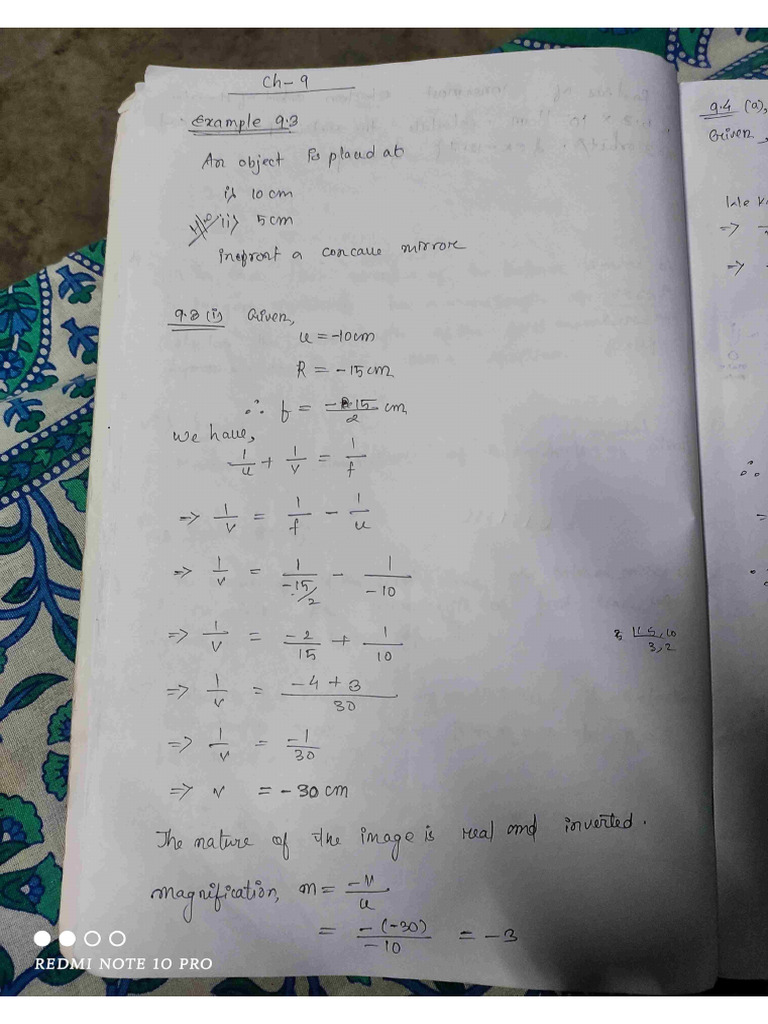 Ch-9
Example 9.3
An object is placed at
i) 10 cm
ii) 5 cm
infront a concave mirror
9.3 (i) Given,
u = -10cm
R = -15 cm
∴ f = -15/2 cm
we have,
1/u + 1/v = 1/f
=> 1/v = 1/f - 1/u
=> 1/v = 1/(-15/2) - 1/-10
=> 1/v = -2/15 + 1/10
5 | 15, 10
3, 2
=> 1/v = (-4+3)/30
=> 1/v = -1/30
=> v = -30 cm
The nature of the image is real and inverted.
Magnification, m = -v/u
= -(-30)/-10 = -3
REDMI NOTE 10 PRO
9.4 (a),
Given,